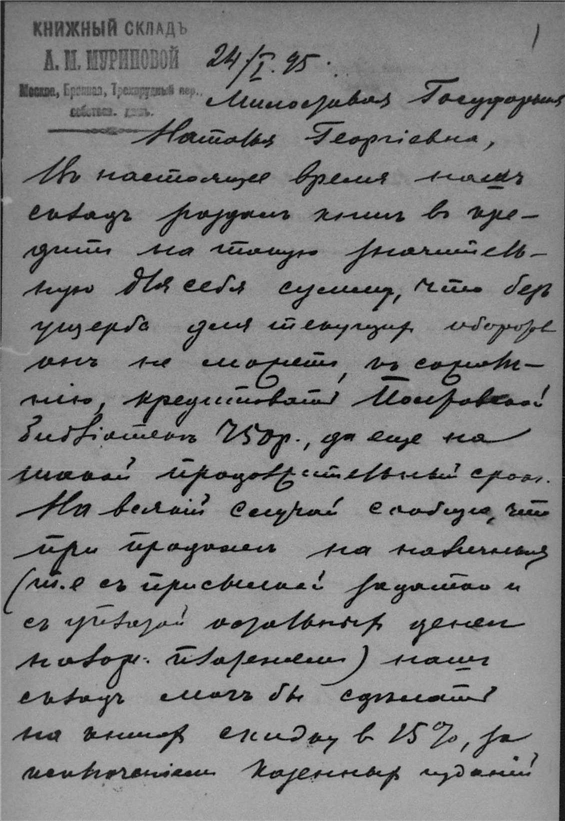 КНИЖНЫЙ СКЛАДЪ
А. М. МУРИНОВОЙ
Москва, Бронная, Трехпрудный пер.,
собствен. домъ.
1
24/I. 95.
Милостивая Государыня
Наталья Георгіевна,
Въ настоящее время нашъ
складъ роздалъ книгъ въ кре-
дитъ на такую значитель-
ную для себя сумму, что безъ
ущерба для текущихъ оборотовъ
онъ не можетъ, къ сожалѣ-
нію, кредитовать
библіотекѣ 750 р., да еще на
такой продолжительный срокъ.
На всякій случай сообщаю, что
при продажѣ на наличныя
(т.е съ присылкой задатка и
съ уплатой остальныхъ денегъ
налож. платежемъ) нашъ
складъ могъ бы сдѣлать
на книгахъ скидку въ 15%, за
исключеніемъ казенныхъ изданій